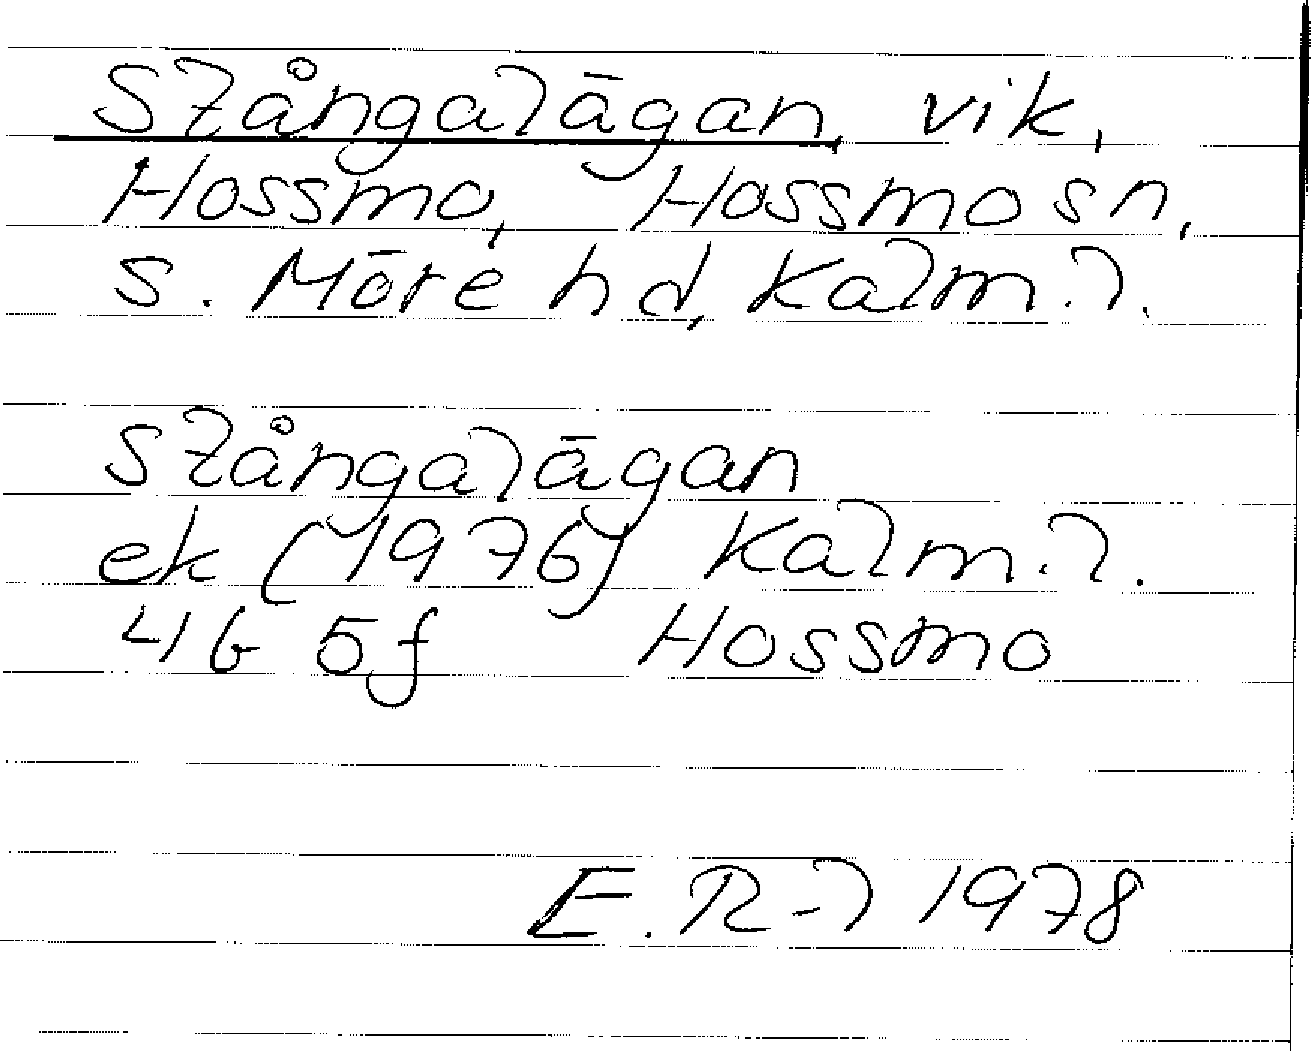 Slångalägan, vik,
Hossmo, Hossmo sn,
S. Möre hd, Kalm.l.
Slångalägan
ek (1976) Kalm.l.
4G 5f Hossmo
E.R-l 1978